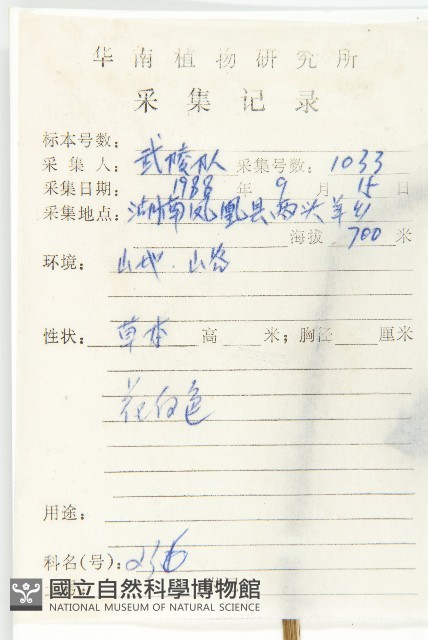 华南植物研究所
采集记录
标本号数：
采集人：武陵队 采集号数：1033
采集日期：1988年9月15日
采集地点：湖南凤凰县两头羊乡
海拔 700 米
环境：山地．山谷
性状：草本 高 米；胸径 厘米
花白色
用途：
科名(号)：236
國立自然科學博物館
NATIONAL MUSEUM OF NATURAL SCIENCE